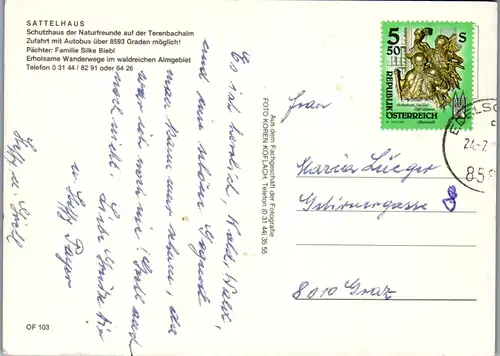 SATTELHAUS
Schutzhaus der Naturfreunde auf der Terenbachalm
Zufahrt mit Autobus über 8593 Graden möglich!
Pächter: Familie Silke Biebl
Erholsame Wanderwege im waldreichen Almgebiet
Telefon 0 31 44 / 82 91 oder 64 26
Es ist herrlich, Wald, Wald,
und eine schöne Gegend
man kann nur sehen, da
war ich noch nie! Groll auch
noch nicht. Liebe Grüße
u. Sepp
Sepp u. Groll
OF 103
Aus dem Fachgeschäft der Fotografie
FOTO KOREN KÖFLACH, Telefon (0 31 44) 35 55
5 50 S
REPUBLIK
ÖSTERREICH
24.-7.
859
Frau
Maria Lueger
8010 Graz